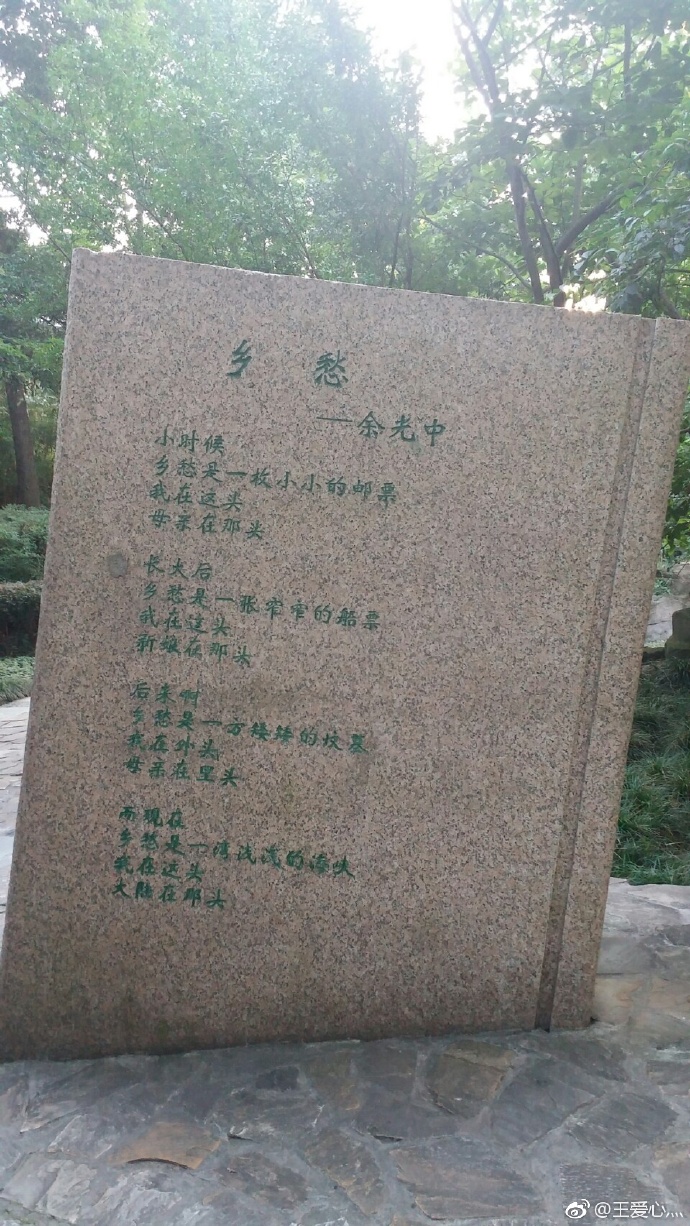 乡愁
——余光中
小时候
乡愁是一枚小小的邮票
我在这头
母亲在那头
长大后
乡愁是一张窄窄的船票
我在这头
新娘在那头
后来啊
乡愁是一方矮矮的坟墓
我在外头
母亲在里头
而现在
乡愁是一湾浅浅的海峡
我在这头
大陆在那头
@王爱心灬